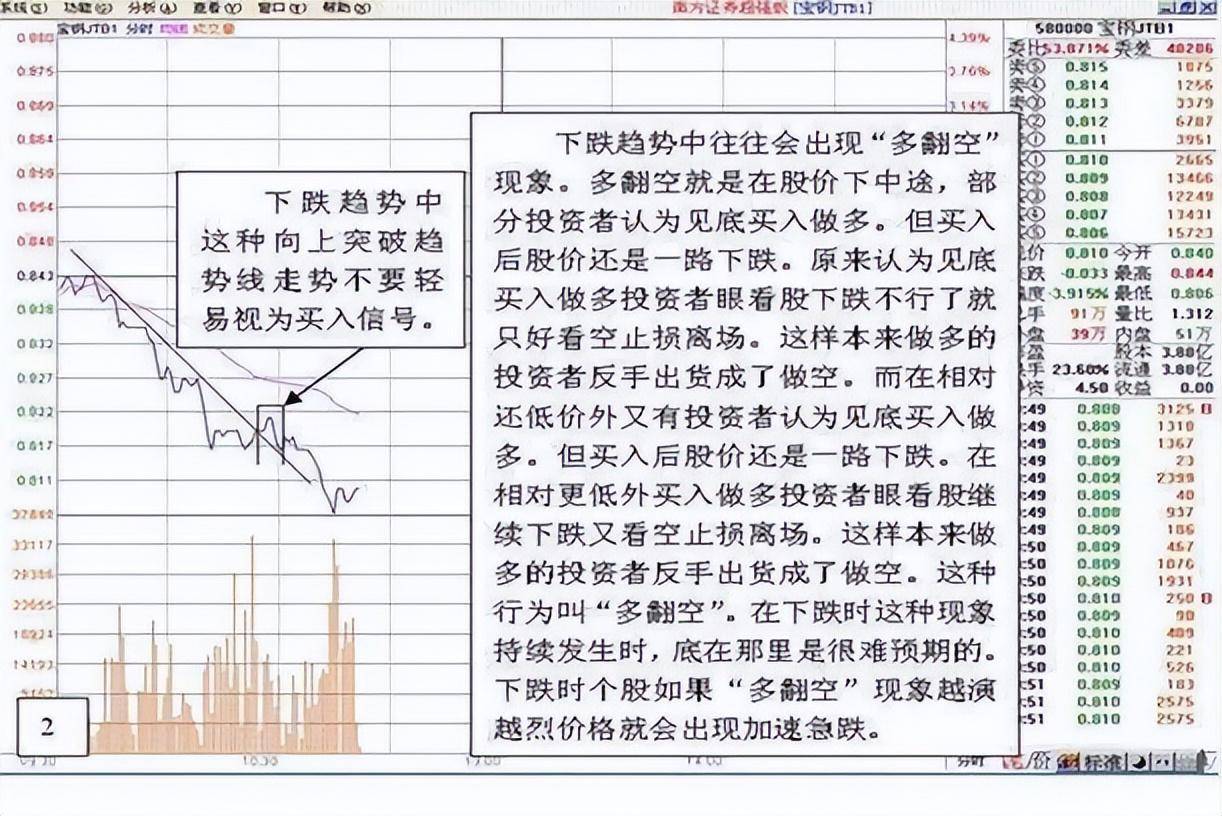 功能 分析 查看 窗口 帮助
[宝钢JTB1]
宝钢JTB1 分时 均线 成交量
580000 宝钢JTB1
委比 53.871% 委差 40206
卖⑤ 0.815 1075
卖④ 0.814 1256
卖③ 0.813 3379
卖② 0.812 6787
卖① 0.811 3951
① 0.810 2665
② 0.809 13466
③ 0.808 12249
④ 0.807 13431
⑤ 0.806 15723
价 0.810 今开 0.840
跌 -0.033 最高 0.844
度 -3.915% 最低 0.806
手 91万 量比 1.312
盘 39万 内盘 51万
盘 股本 3.88亿
手 23.60% 流通 3.88亿
资 4.50 收益 0.00
:49 0.808 3125
:49 0.809 1310
:49 0.809 1367
:49 0.809 23
:49 0.809 2399
:49 0.809 40
:49 0.808 937
:49 0.809 186
:50 0.809 457
:50 0.809 1076
:50 0.809 1931
:50 0.810 250
:50 0.809 90
:50 0.810 489
:50 0.810 221
:50 0.810 526
:51 0.809 183
:51 0.810 2575
:51 0.810 2575
4.39%
3.76%
3.14%
0.875
0.869
0.864
0.859
0.854
0.848
0.843
0.838
0.832
0.827
0.822
0.817
0.811
下跌趋势中
这种向上突破趋
势线走势不要轻
易视为买入信号。
下跌趋势中往往会出现“多翻空”
现象。多翻空就是在股价下中途，部
分投资者认为见底买入做多。但买入
后股价还是一路下跌。原来认为见底
买入做多投资者眼看股下跌不行了就
只好看空止损离场。这样本来做多的
投资者反手出货成了做空。而在相对
还低价外又有投资者认为见底买入做
多。但买入后股价还是一路下跌。在
相对更低外买入做多投资者眼看股继
续下跌又看空止损离场。这样本来做
多的投资者反手出货成了做空。这种
行为叫“多翻空”。在下跌时这种现象
持续发生时，底在那里是很难预期的。
下跌时个股如果“多翻空”现象越演
越烈价格就会出现加速急跌。
2
10:30
分时
标准